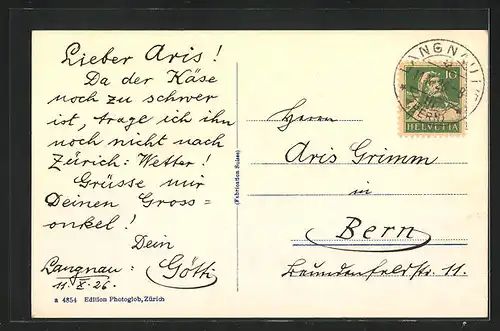 Lieber Aris!
Da der Käse
noch zu schwer
ist, trage ich ihn
noch nicht nach
Zürich: Wetter!
Grüsse mir
Deinen Gross=
onkel!
Dein
Götti
Langnau:
11. X. 26.
a 4854 Edition Photoglob, Zürich
(Fabrication Suisse)
LANGNAU
(BERN)
10
HELVETIA
Herrn
Aris Grimm
in
Bern
Beundenfeldstr. 11.